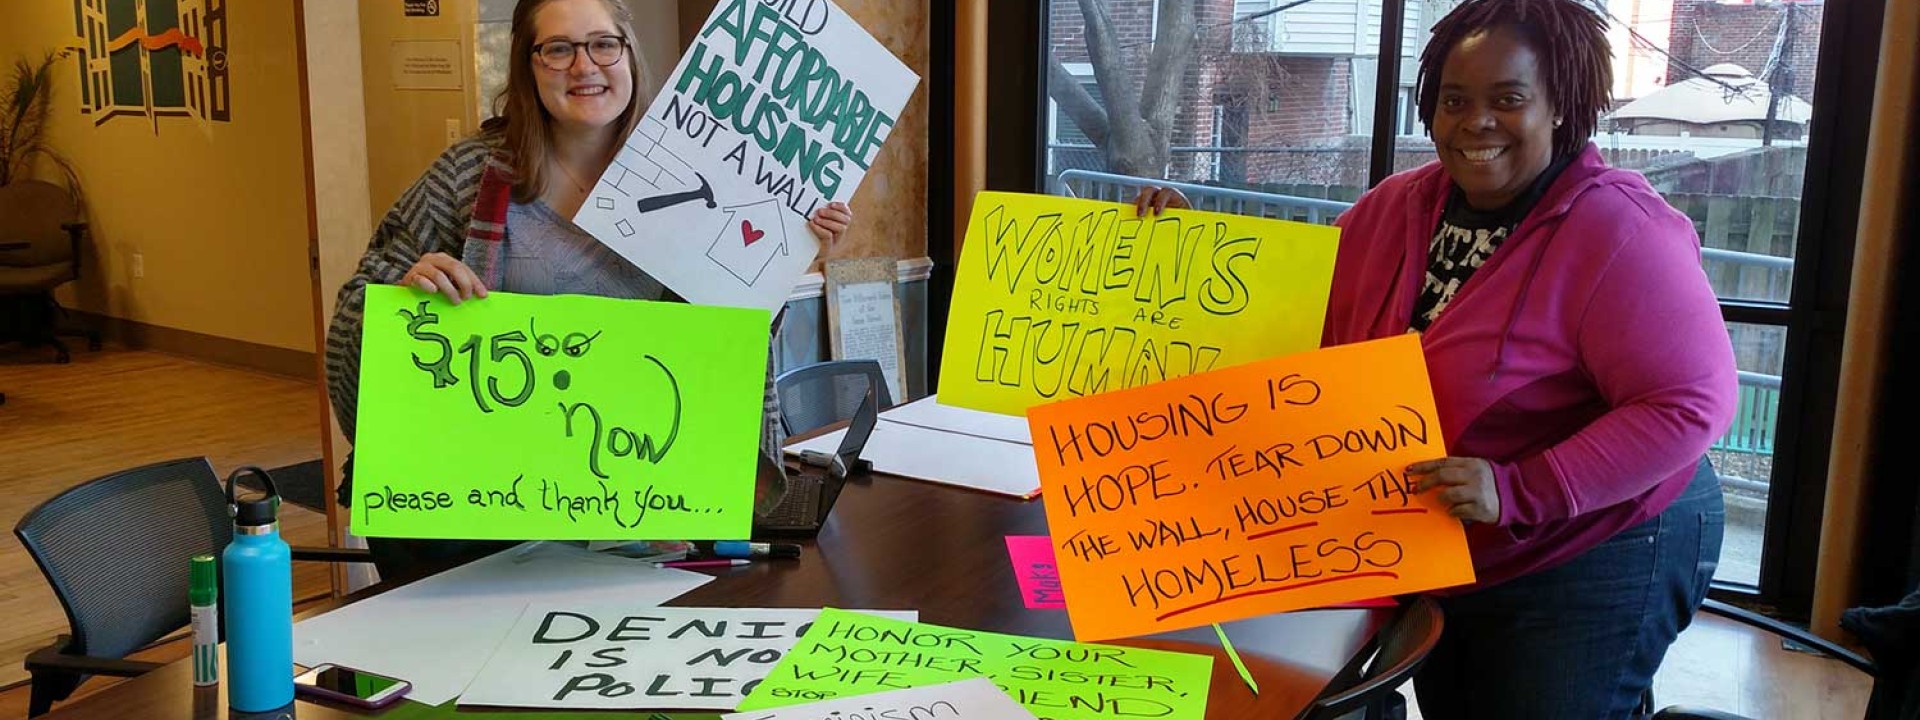 AFFORDABLE
HOUSING
NOT A WALL
$15
now
please and thank you...
WOMEN'S
RIGHTS ARE
HUMAN
HOUSING IS
HOPE. TEAR DOWN
THE WALL, HOUSE THE
HOMELESS
DENI
IS NO
POLIC
HONOR YOUR
MOTHER, SISTER,
WIFE
STOP